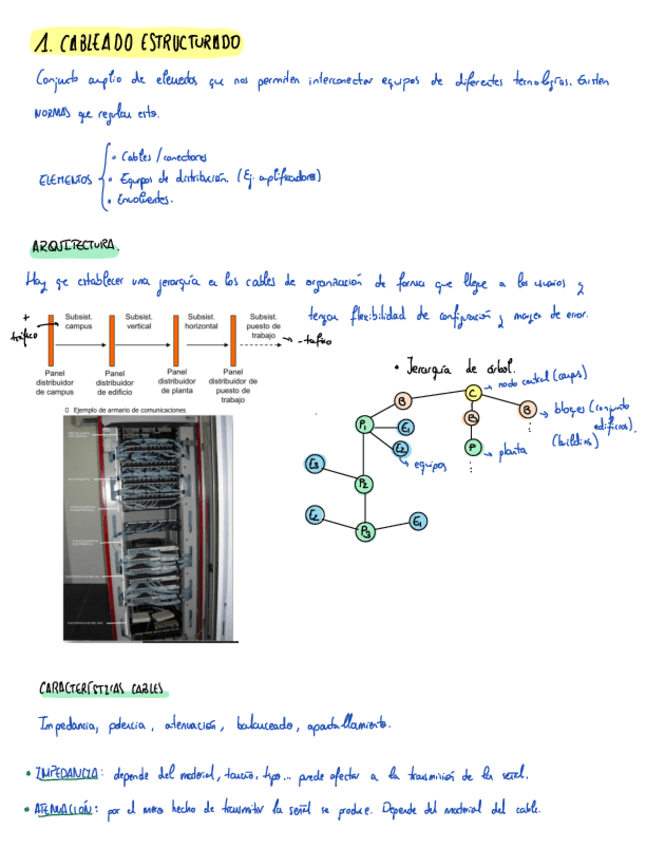 1. CABLEADO ESTRUCTURADO
Conjunto amplio de elementos que nos permiten interconectar equipos de diferentes tecnologías. Existen
NORMAS que regulan esto.
ELEMENTOS
• Cables / conectores
• Equipos de distribución. (Ej. amplificadores)
• Envolventes.
ARQUITECTURA.
Hay que establecer una jerarquía en los cables de organización de forma que llegue a los usuarios y
tengan flexibilidad de configuración y margen de error.
+ tráfico
Subsist. campus
Subsist. vertical
Subsist. horizontal
Subsist. puesto de trabajo
- tráfico
Panel distribuidor de campus
Panel distribuidor de edificio
Panel distribuidor de planta
Panel distribuidor de puesto de trabajo
Ejemplo de armario de comunicaciones
• Jerarquía de árbol.
C
nodo central (campus)
B
B
B
bloques (conjunto edificios).
(building)
P1
E1
E2
equipos
P
planta
E3
P2
E2
P3
E1
CARACTERÍSTICAS CABLES
Impedancia, potencia, atenuación, balanceado, apantallamiento.
• IMPEDANCIA: depende del material, tamaño, tipo... puede afectar a la transmisión de la señal.
• ATENUACIÓN: por el mero hecho de transmitir la señal se produce. Depende del material del cable.